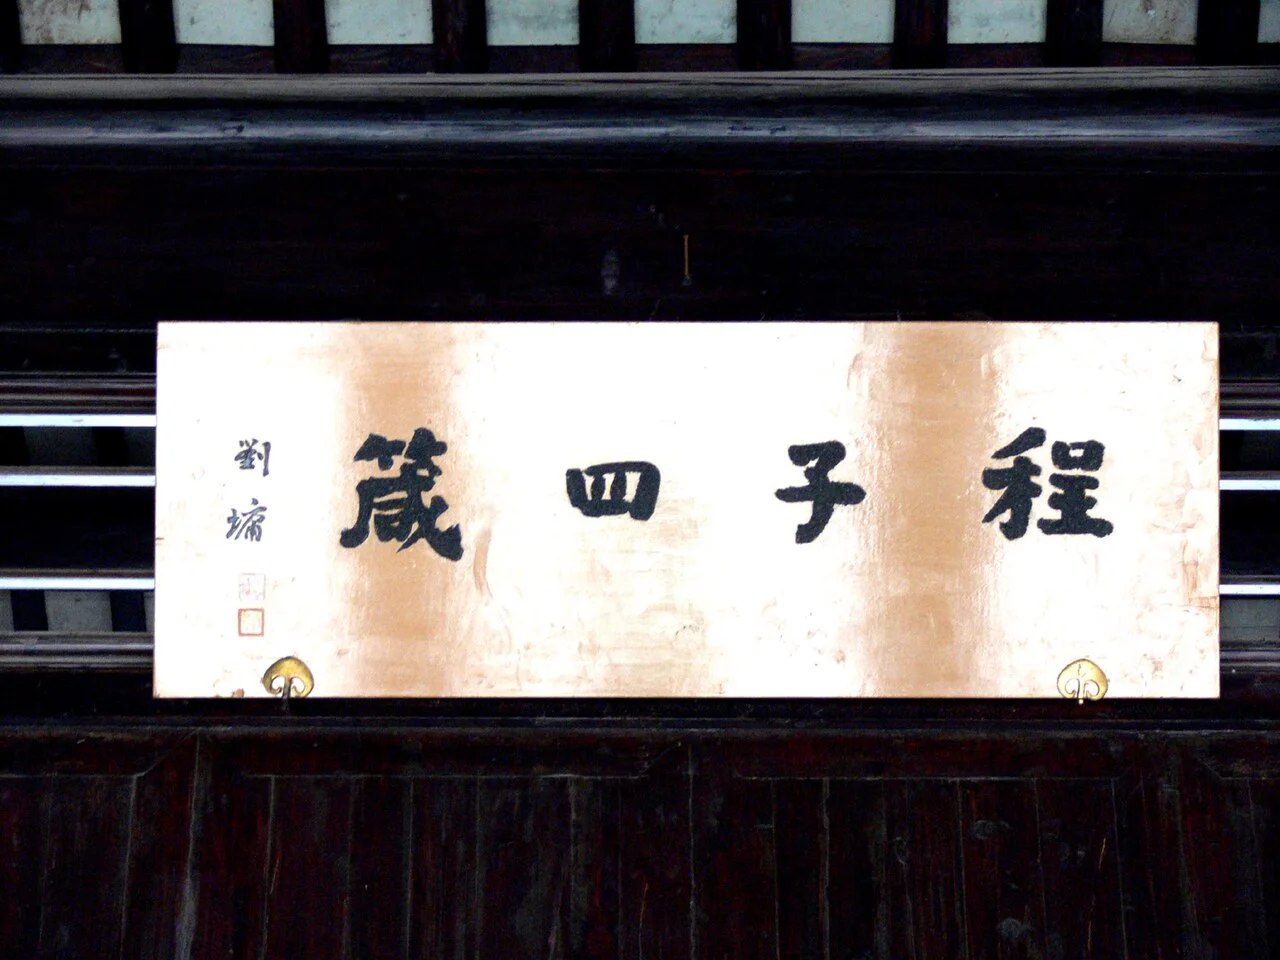 程子四箴
劉墉